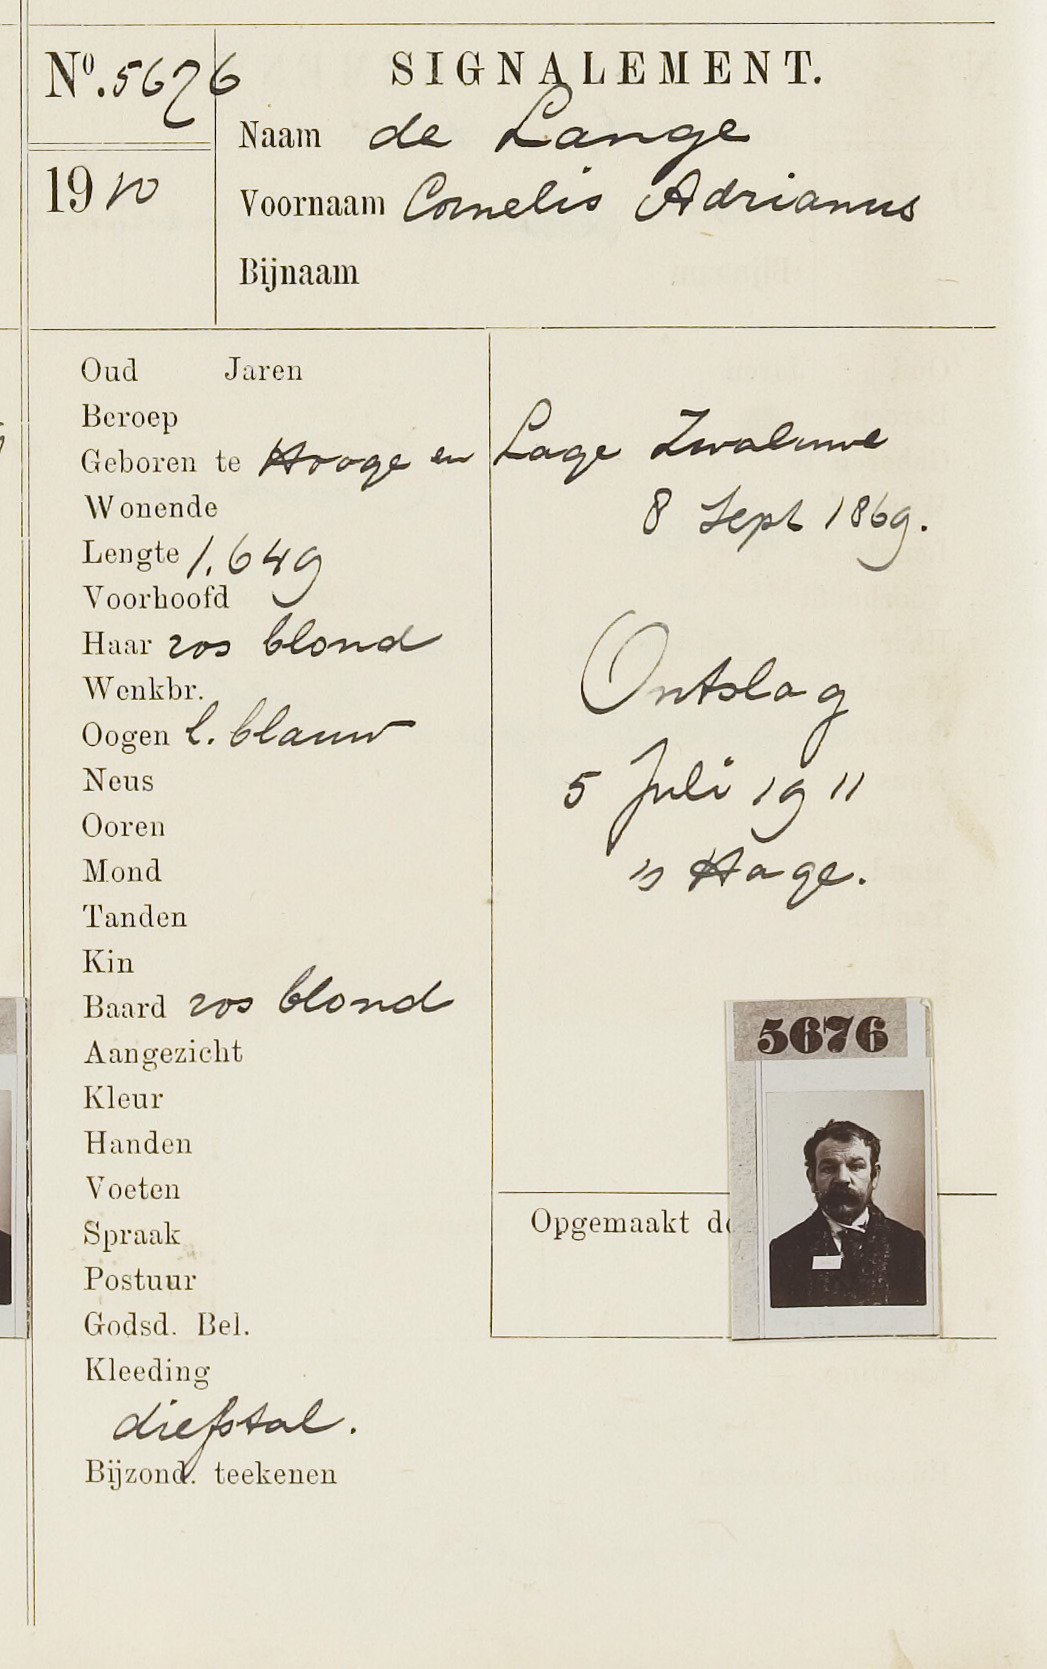 Nº. 5676
SIGNALEMENT.
Naam de Lange
1910
Voornaam Cornelis Adrianus
Bijnaam
Oud Jaren
Beroep
Geboren te Hooge en Lage Zwaluwe
8 Sept 1869.
Wonende
Lengte 1.649
Voorhoofd
Haar ros blond
Wenkbr.
Oogen l. blauw
Neus
Ooren
Mond
Tanden
Kin
Baard ros blond
Aangezicht
Kleur
Handen
Voeten
Spraak
Postuur
Godsd. Bel.
Kleeding
diefstal.
Bijzond. teekenen
Ontslag
5 Juli 1911
's Hage.
5676
Opgemaakt